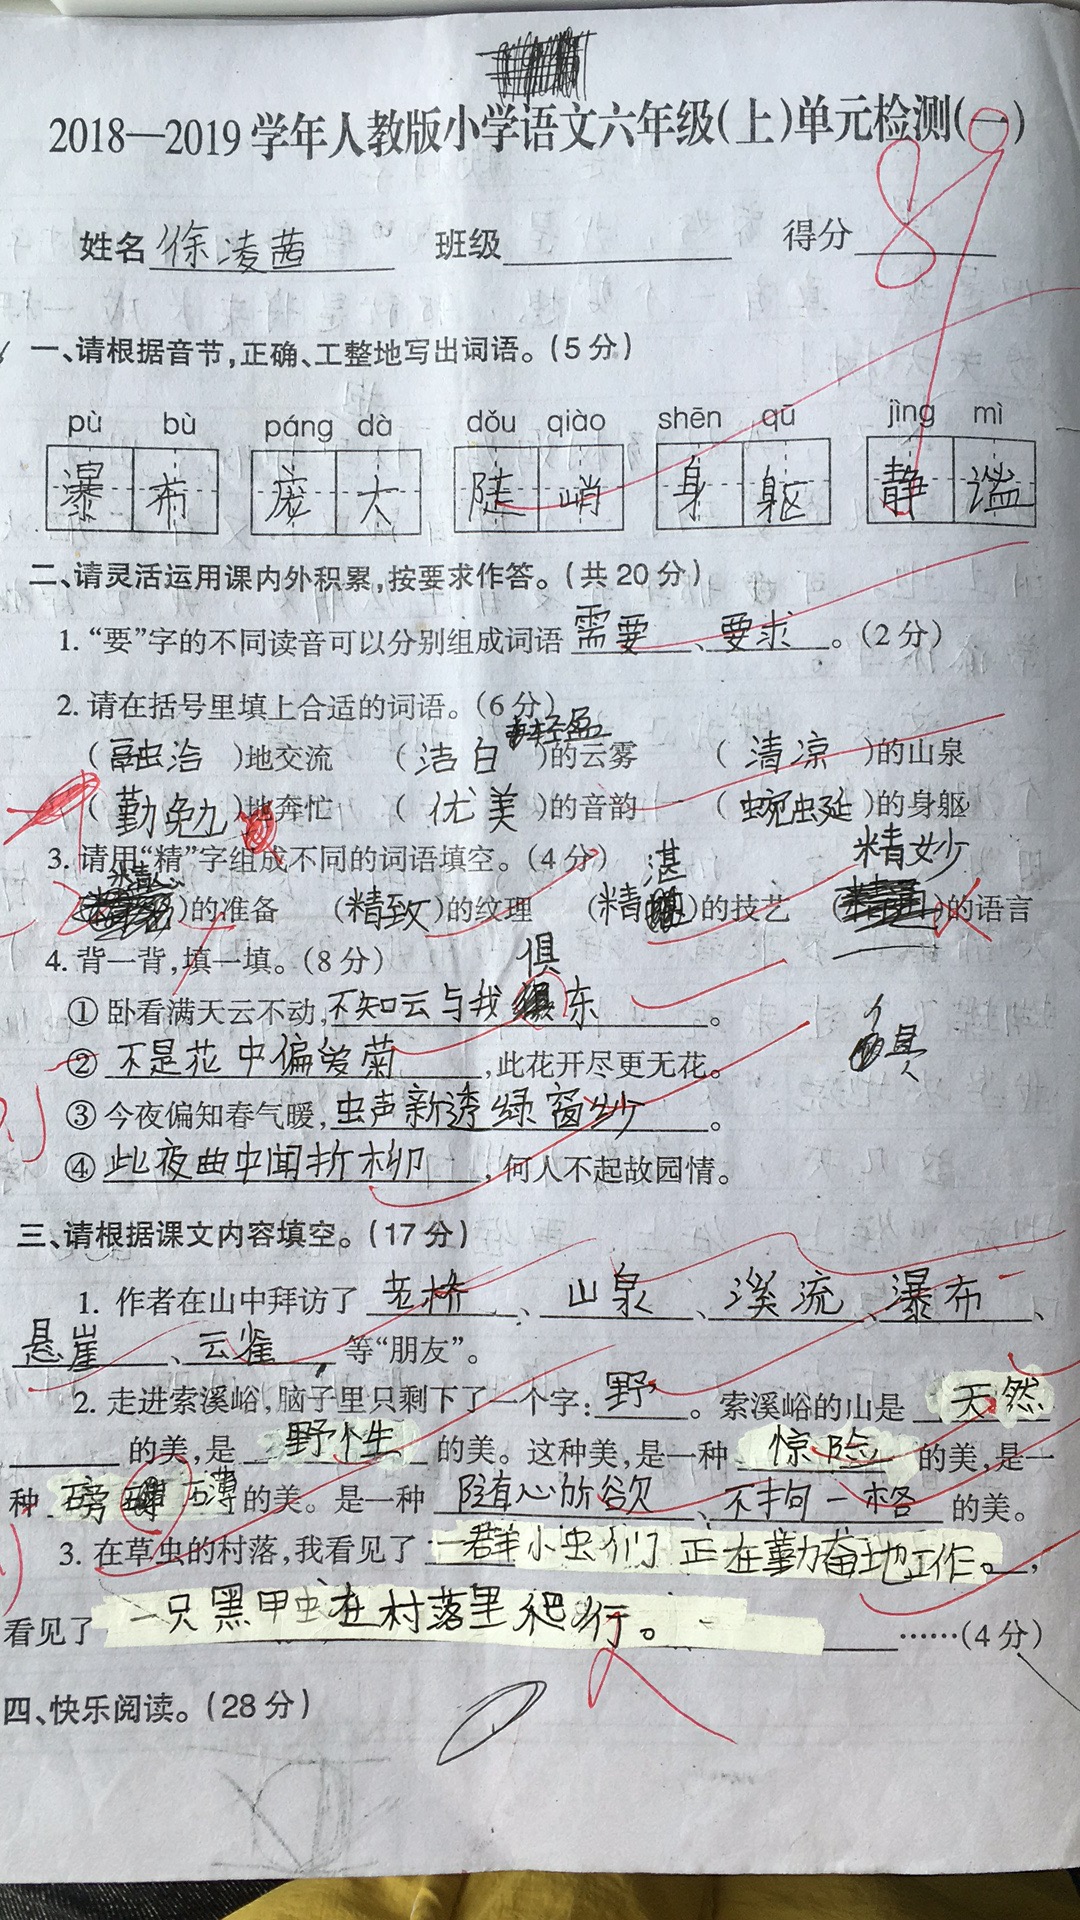 2018—2019学年人教版小学语文六年级(上)单元检测(一)
89
姓名 徐凌茜 班级 得分
一、请根据音节,正确、工整地写出词语。(5分)
pù bù páng dà dǒu qiào shēn qū jìng mì
瀑布 庞大 陡峭 身躯 静谧
二、请灵活运用课内外积累,按要求作答。(共20分)
1. “要”字的不同读音可以分别组成词语 需要 、 要求 。(2分)
2. 请在括号里填上合适的词语。(6分)
轻盈
( 融洽 )地交流 ( 洁白 )的云雾 ( 清凉 )的山泉
( 勤勉 )地奔忙 ( 优美 )的音韵 ( 蜿蜒 )的身躯
3. 请用“精”字组成不同的词语填空。(4分) 湛 精妙
精心
( )的准备 (精致)的纹理 (精 )的技艺 ( )的语言
4. 背一背,填一填。(8分) 俱
① 卧看满天云不动,不知云与我 东 。
俱
② 不是花中偏爱菊 ,此花开尽更无花。
③ 今夜偏知春气暖,虫声新透绿窗纱 。
④ 此夜曲中闻折柳 ,何人不起故园情。
三、请根据课文内容填空。(17分)
1. 作者在山中拜访了 老桥 、 山泉 、 溪流 、瀑布 、
悬崖 、云雀 , 等“朋友”。
2. 走进索溪峪,脑子里只剩下了一个字: 野 。索溪峪的山是 天然
的美,是 野性 的美。这种美,是一种 惊险 的美,是一
种 磅 礴 的美。是一种 随心所欲 、不拘一格 的美。
3. 在草虫的村落,我看见了 一群小虫们正在勤奋地工作。 ,
看见了 一只黑甲虫在村落里爬行。 ……(4分)
四、快乐阅读。(28分)